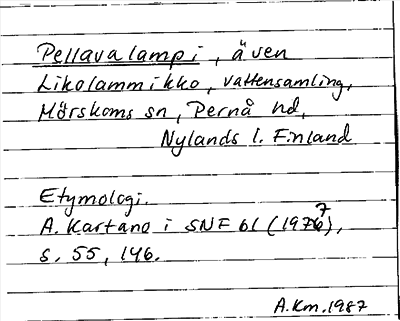 Pellavalampi, även
Likolammikko, vattensamling,
Mörskoms sn, Pernå hd,
Nylands l. Finland
Etymologi.
A. Kartano i SNF 61 (1977),
s. 55, 146.
A.Km.1987